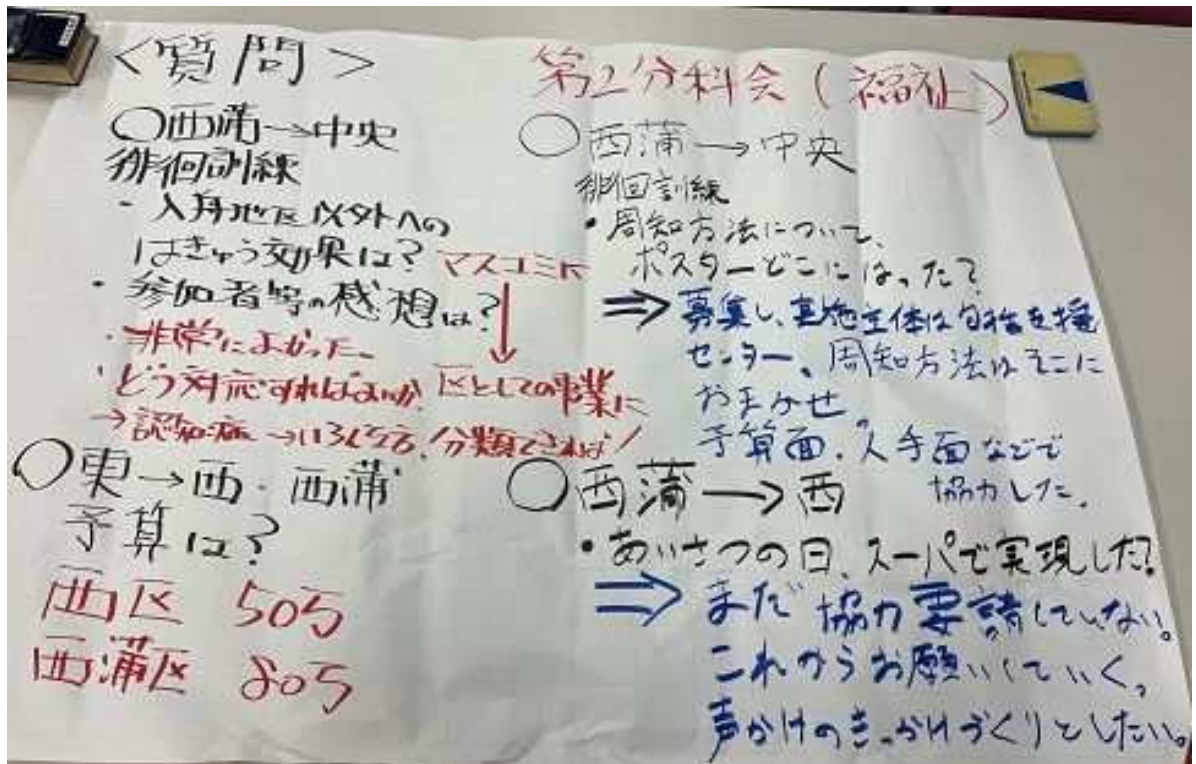 <質問>
○西蒲→中央
徘徊訓練
・入舟地区以外への
はきゅう効果は?
・参加者等の感想は?
マスコミに
↓
・非常によかった。
・どう対応すればよいか
区としての事業に
→認知症→いろいろ、分類できれば
○東→西・西蒲
予算は?
西区 50万
西蒲区 80万
第2分科会(福祉)
○西蒲→中央
徘徊訓練
・周知方法について、
ポスターどこにはった?
⇒募集し、実施主体は包括支援
センター、周知方法はそこに
おまかせ。
予算面、人手面などで
協力した。
○西蒲→西
・あいさつの日、スーパで実現した?
⇒まだ協力要請していない。
これからお願いしていく。
声かけのきっかけづくりとしたい。